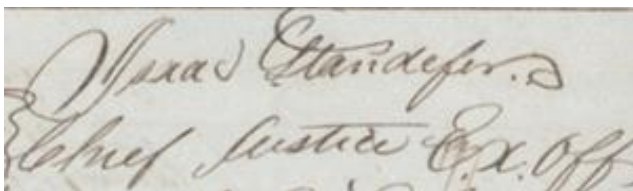 Isaac Standefer
Chief Justice Ex. Off